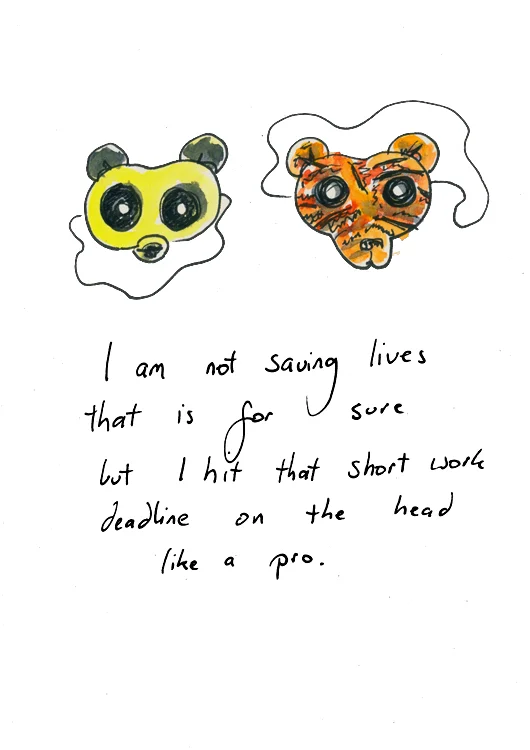 I am not saving lives
that is for sure
but I hit that short work
deadline on the head
like a pro.